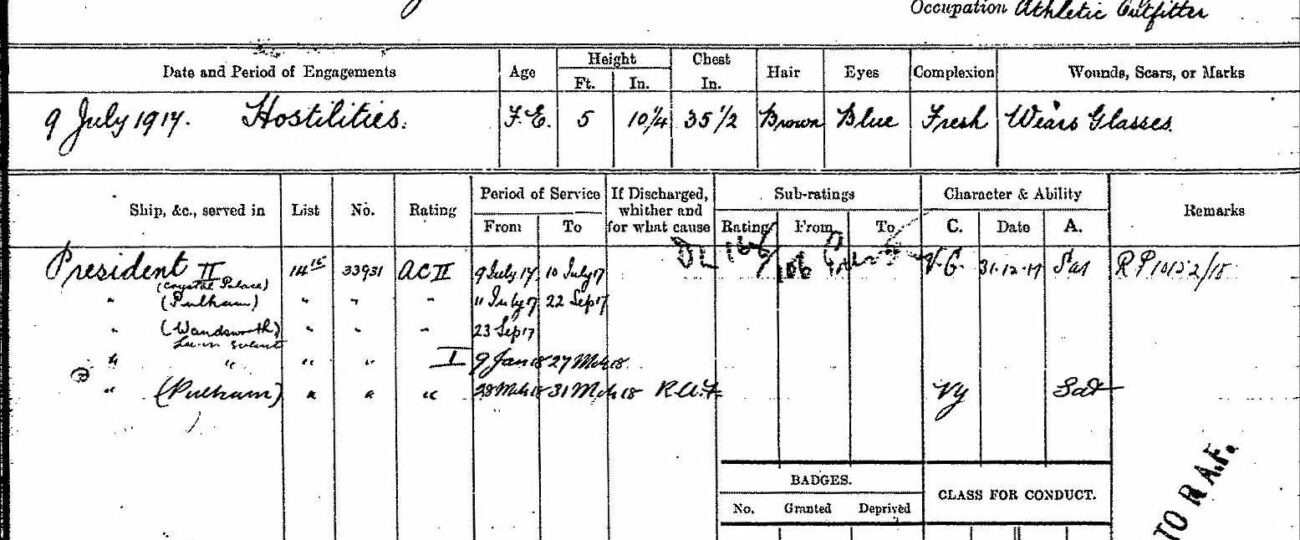 Occupation Athletic Outfitter
Date and Period of Engagements Age Height Ft. In. Chest In. Hair Eyes Complexion Wounds, Scars, or Marks
9 July 1917. Hostilities. F.E. 5 10 1/4 35 1/2 Brown Blue Fresh Wears Glasses.
Ship, &c., served in List No. Rating Period of Service From To If Discharged, whither and for what cause Sub-ratings Rating From To Character & Ability C. Date A. Remarks
President II 14 15 33931 AC II 9 July 17 10 July 17 V.G. 31-12-17 Sat RP 10152/18
(Crystal Palace)
" (Pulham) " " " 11 July 17 22 Sep 17
" (Wandsworth) " " " 23 Sep 17
" " " " I 9 Jan 18 27 Mch 18
" (Pulham) " " " 28 Mch 18 31 Mch 18 R.A.F. VG Sat
BADGES.
No. Granted Deprived
CLASS FOR CONDUCT.
TO R.A.F.